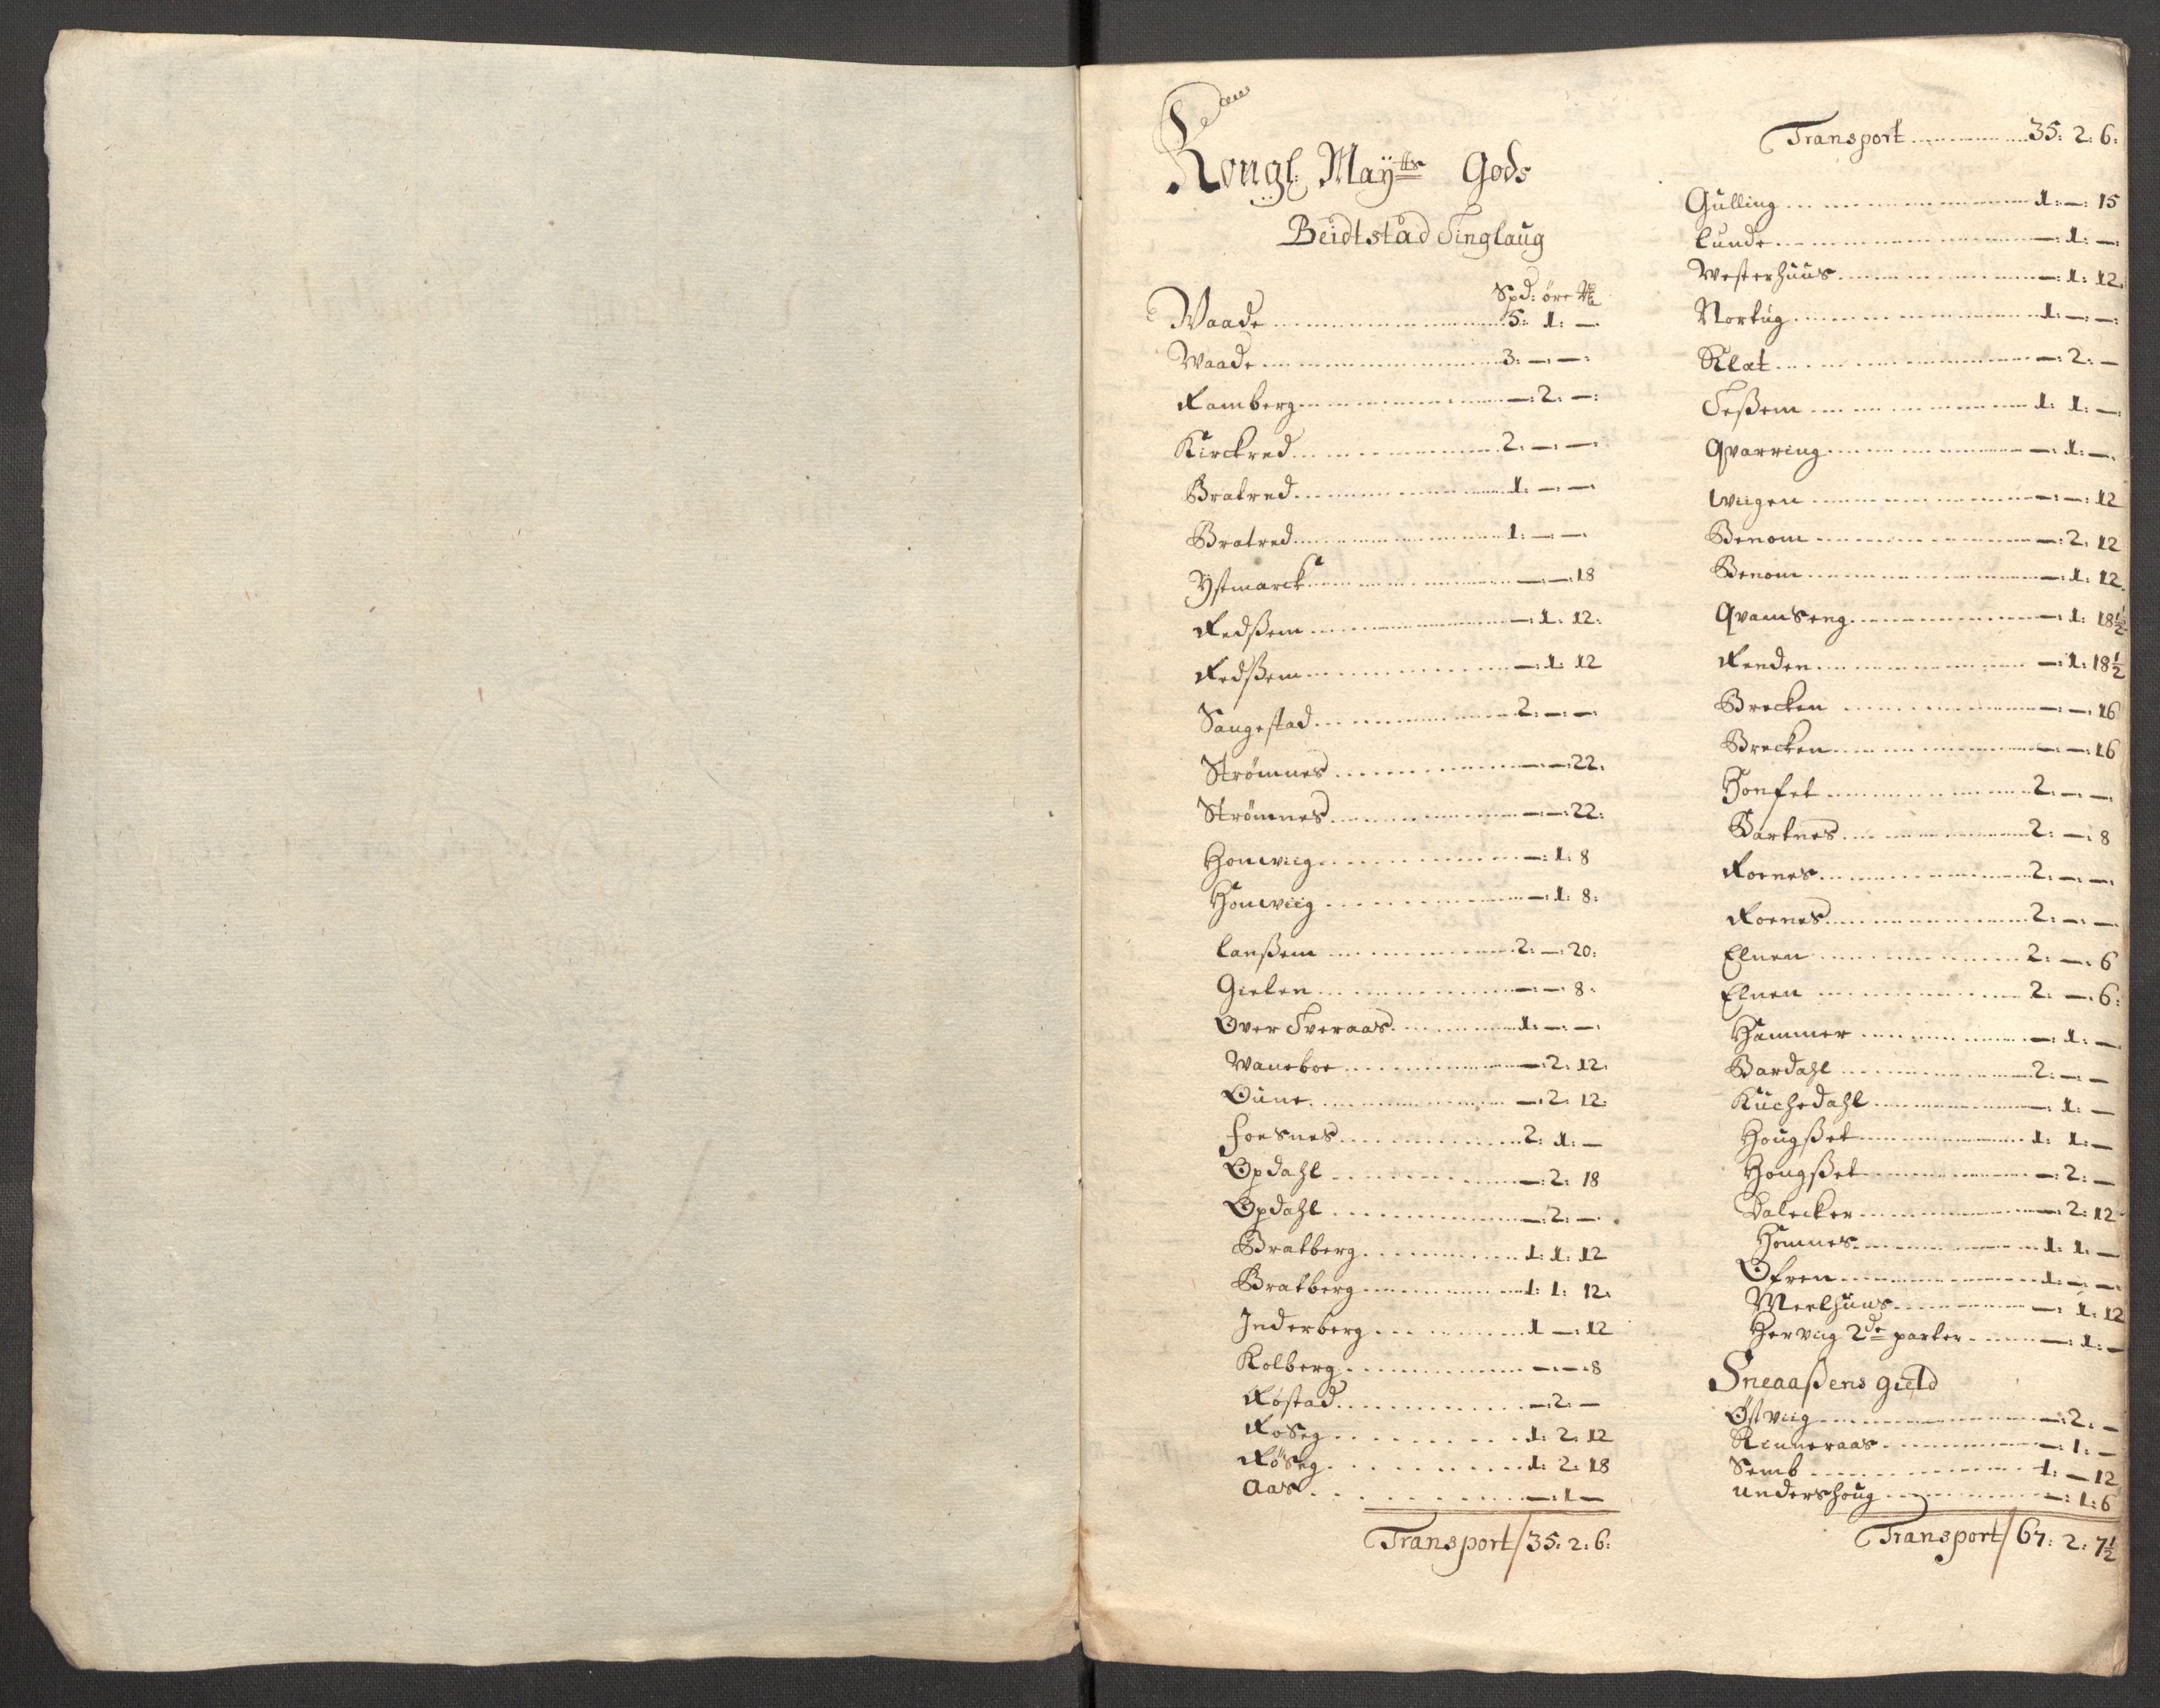 Kongl: Mayᵗᵗˢ Gods
Beidtstad Tinglaug
Spd: øre
Waade 5: 1: —
Waade 3: —: —:
Ramberg —: 2: —:
Kirckred 2: —: —:
Bratred 1: —: —:
Bratred 1: —: —:
Ystmarck —: —: 18
Redßem —: 1: 12:
Redßem —: 1: 12
Saugestad 2: —: —:
Strømnes —: —: 22:
Strømnes —: —: 22:
Honwiig —: 1: 8
Honwiig —: 1: 8:
Lanßem 2: —: 20:
Gielen —: —: 8:
Over Tveraas 1: —: —:
Waneboe —: 2: 12:
Oune —: 2: 12:
Foesnes 2: 1: —
Opdahl —: 2: 18
Opdahl —: 2: —
Bratberg 1: 1: 12
Bratberg 1: 1: 12:
Inderberg 1 —: 12
Kolberg —: —: 8
Røstad —: 2: —
Røseg 1: 2: 12
Røseg 1: 2: 18
Aas —: 1 —
Transport 35: 2: 6:
Transport 35: 2: 6:
Gulling 1: —: 15
Lunde —: 1: —:
Westerhuus —: 1: 12:
Nortug 1: —: —:
Klæt —: 2: —
Teßem 1: 1: —:
Qvarring —: 1: —:
Wiigen —: —: 12
Benom —: 2: 12
Benom —: 1: 12:
Qvamseng —: 1: 18½
Renden —: 1: 18½
Brecken —: —: 16
Brecken —: —: 16
Honset 2: —: —:
Bartnes 2: —: 8
Roenes 2: —: —:
Roenes 2: —: —:
Elnen 2: —: 6
Elnen 2: —: 6:
Hammer —: 1: —:
Bardahl 2: —: —
Kuchedahl —: 1: —
Hougßet 1: 1: —
Hougßet —: 2: —
Dalecker —: 2: 12
Homnes 1: 1: —
Ofren 1: —: —:
Meelhuus —: 1: 12
Herviig 2ᵈᵉ parter —: 1: —
Sneaaßens gield
Østviig —: 2: —
Kinneraas —: 1: —
Semb 1: — 12
Undershoug —: 1: 6
Transport 67: 2: 7½